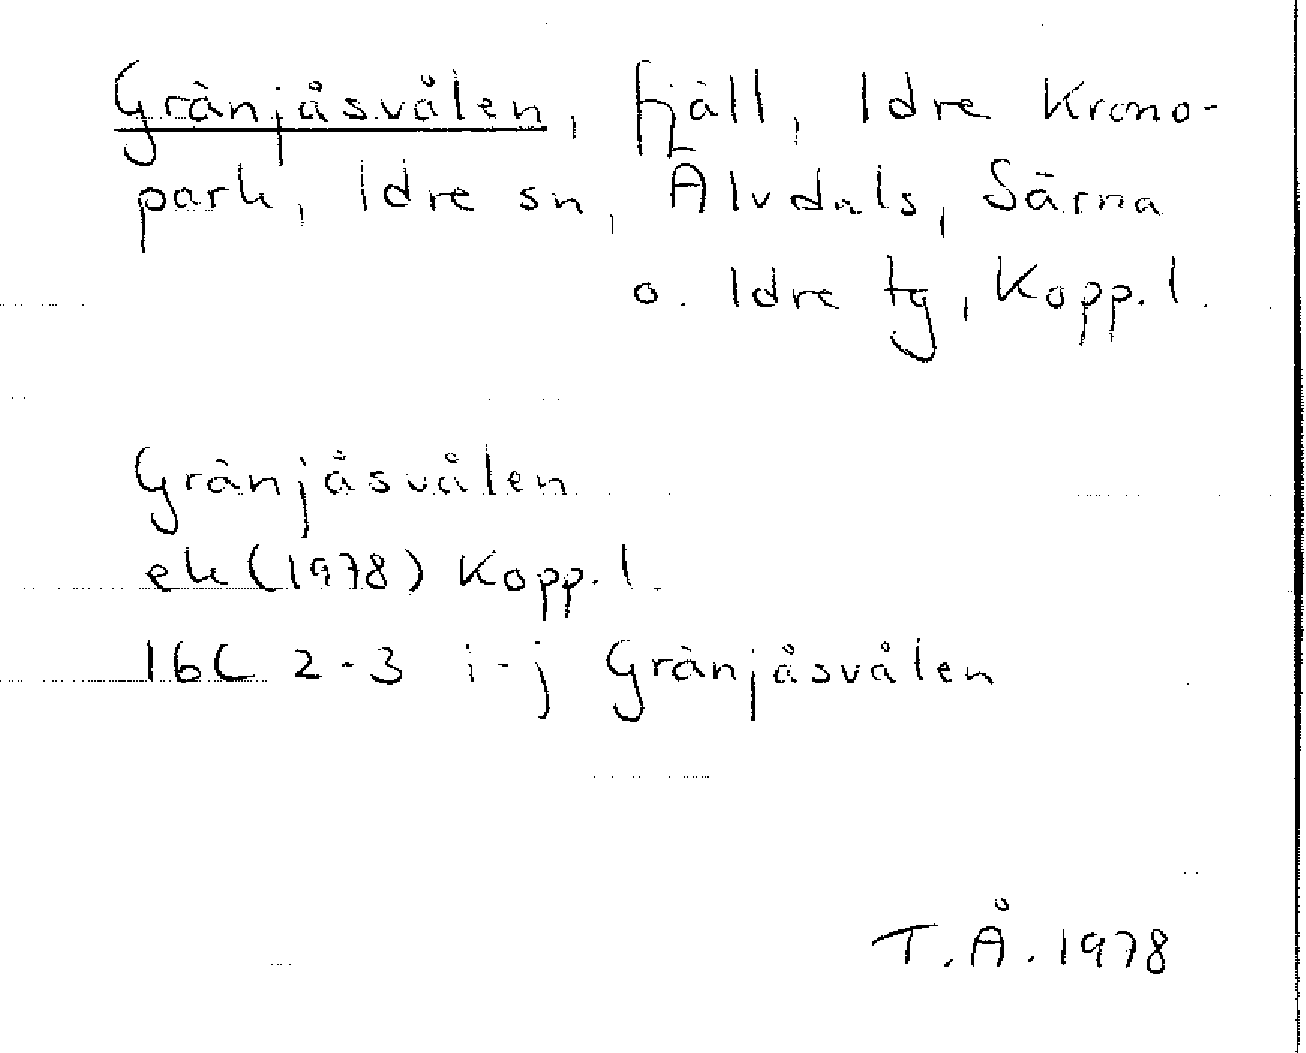 Gränjåsvålen, fjäll, Idre Krono-
park, Idre sn, Älvdals, Särna
o. Idre tg, Kopp. l.
Gränjåsvålen
ek (1978) Kopp. l
16C 2-3 i-j Gränjåsvålen
T.Å. 1978